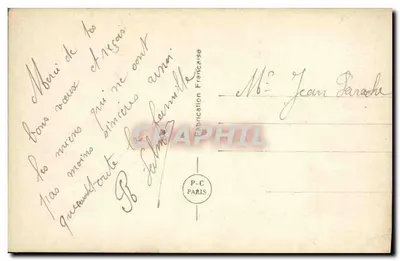 Merci de tes
bons vœux et reçois
les miens qui ne sont
pas moins sincères ainsi
que toute la famille
Fabrication Française
P-C
PARIS
Mr Jean
CPARAMA.COM